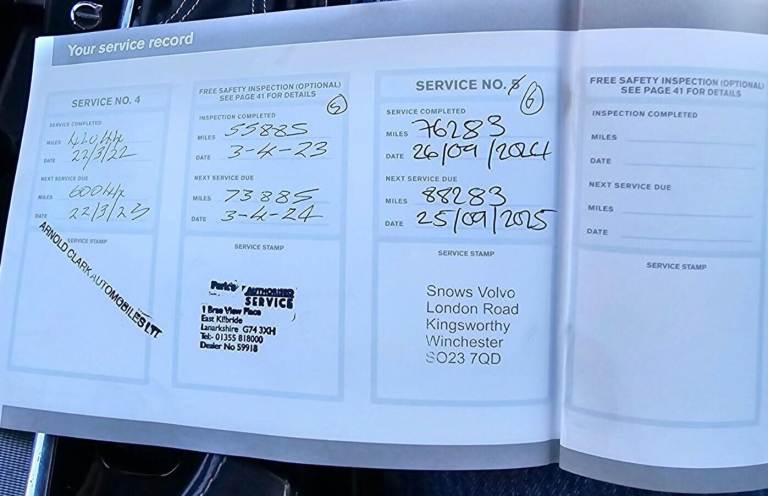 Your service record
SERVICE NO. 4
SERVICE COMPLETED
MILES
DATE 22/3/22
NEXT SERVICE DUE
MILES
DATE 22/3/23
SERVICE STAMP
ARNOLD CLARK AUTOMOBILES LTD
FREE SAFETY INSPECTION (OPTIONAL)
SEE PAGE 41 FOR DETAILS
5
INSPECTION COMPLETED
MILES 55885
DATE 3-4-23
NEXT SERVICE DUE
MILES 73885
DATE 3-4-24
SERVICE STAMP
Park's AUTHORISED
SERVICE
1 Brae View Place
East Kilbride
Lanarkshire G74 3XH
Tel:- 01355 818000
Dealer No 59918
SERVICE NO. 5 6
SERVICE COMPLETED
MILES 76283
DATE 26/09/2024
NEXT SERVICE DUE
MILES 88283
DATE 25/09/2025
SERVICE STAMP
Snows Volvo
London Road
Kingsworthy
Winchester
SO23 7QD
FREE SAFETY INSPECTION (OPTIONAL)
SEE PAGE 41 FOR DETAILS
INSPECTION COMPLETED
MILES
DATE
NEXT SERVICE DUE
MILES
DATE
SERVICE STAMP